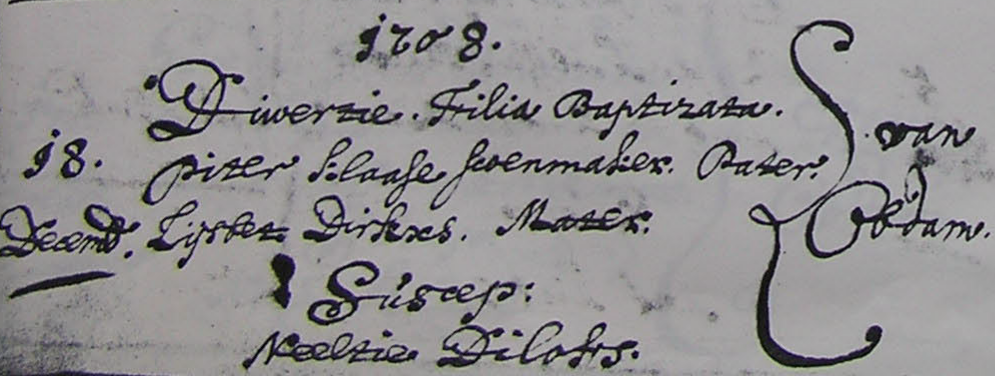 1708.
Diwertie. Filia Baptizata.
18. Piter Klaase scoenmaker. Pater.
Decemb. Lijsbet Dirkxs. Mater.
van
Obdam.
Suscep:
Neeltie